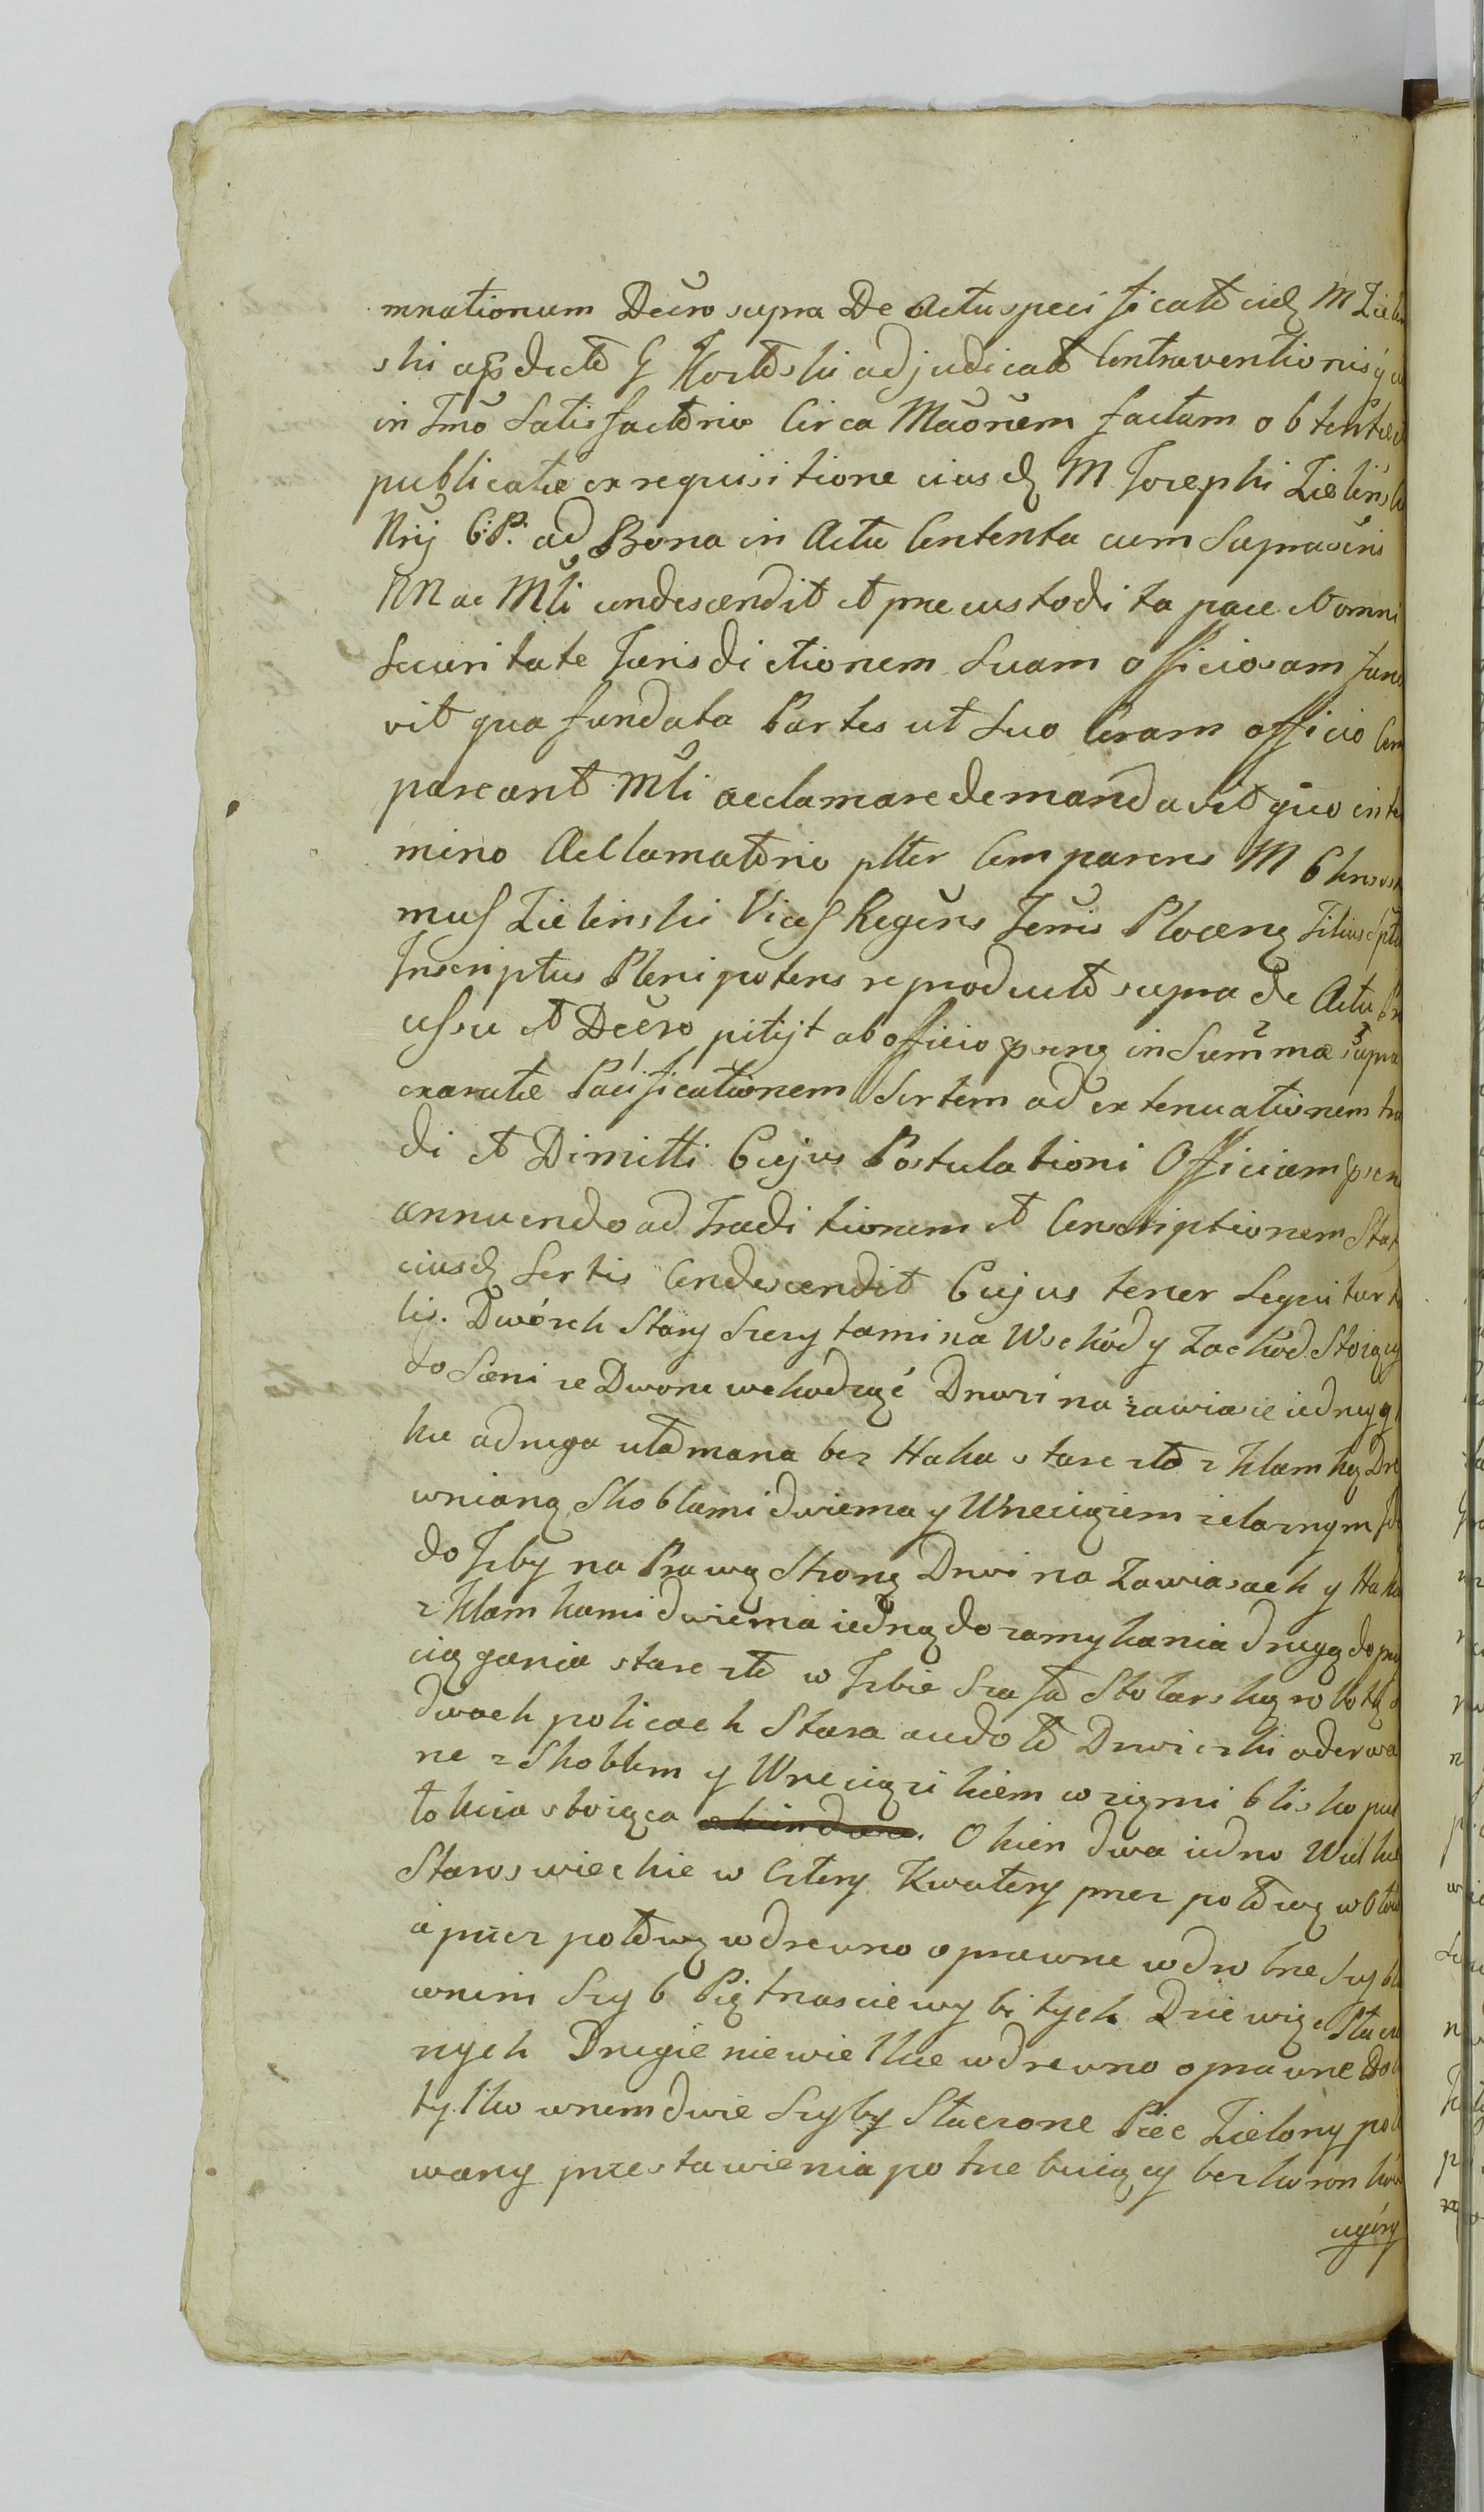 mnationum Decro supra De Actu specificato eid M Zielin
ski a praedicto G Kozłoski adjudicato Contraventionis
in Tmo Satisfactorio Circa Maonem factam obtento et
publicato ex requisitione eiusd M Josephi Zielinski
Nrij C: P: ad Bona in Actu Contenta cum Suprascris
NN ac Mli condescendit et praecustodita pace et omni
Securitate Jurisdictionem Suam officiosam funda
vit qua fundata Partes ut Suo Coram officio Com
pareant Mli acclamare demandavit quo in ter
mino Acclamatorio plter Comparens M Chrisosto
mus Zielinski Vices Regens Terris Plocens Filius
Inscriptus Plenipotens reproducto supra de Actu
ussu et Decro petijt ab officio praesng in Summae supra
exaratae Pacificationem Sortem ad extenuationem tra
di et Dimitti Cujus Postulationi Officium praesen
annuendo ad Traditionem et Conscriptionem Stat
eiusd Sortis Condescendit Cujus tenor Sequitur ta
lis. Dwórek Stary Szczytami na Wschód y Zachód Stoiący
do Sieni ze Dworu wchodząć Drzwi na zawiasie iedney y
ku a druga ułomana bez Haka stare złe z klamką Dre
wnianą Skoblami dwiema y Wrzeciązem żelaznym
do Izby na Prawą Stronę Drzwi na Zawiasach y Haka
z klamkami dwiema iedną do zamykania drugą do prz
ciągania stare złe w Izbie Szafa Stolarską robotą o
dwoch policach Stara a u dołu Drzwiczki oderwa
ne z Skoblem y Wrzeciązikiem w ziemi blisko puł
łokcia stoiąca Okien dwa iedno Wielkie
Staroswieckie w Cztery Kwatery przez połowę w Ołów
a przez połowę w drewno oprawne w drobne Szybki
w nim Szyb Piętnascie wybitych Dziewięć Stłuczo
nych Drugie niewielkie w drewno oprawne Dobre
tylko w nem dwie Szyby Stłuczone Piec Zielony pole
wany przestawienia potrzebuiący bez koronków
ugóry